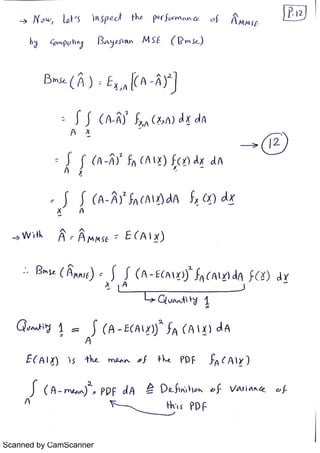 P.12
→ Now, let's inspect the performance of ÂMMSE
by computing Bayesian MSE (Bmse)
Bmse(Â) = Ex,A[(A-Â)²]
= ∫∫ (A-Â)² fx,A(x,A) dx dA
A x
→ 12
= ∫∫ (A-Â)² fA(A|x) f(x) dx dA
A x x
= ∫∫ (A-Â)² fA(A|x) dA fx(x) dx
x A
→ With Â = ÂMMSE = E(A|x)
∴ Bmse(ÂMMSE) = ∫∫ (A-E(A|x))² fA(A|x) dA f(x) dx
x A
↳ Quantity 1
Quantity 1 = ∫ (A-E(A|x))² fA(A|x) dA
A
E(A|x) is the mean of the PDF fA(A|x)
∫ (A-mean)² * PDF dA ≜ Definition of variance of
A this PDF
Scanned by CamScanner